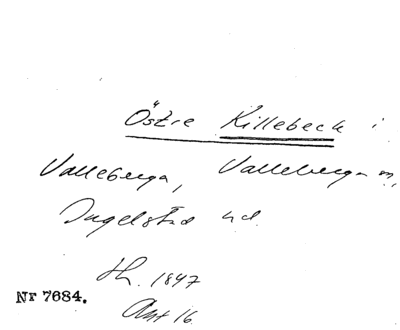 Östre Killebeck i
Valleberga, Valleberga sn,
Ingelstad hd.
Sk. 1847
Akt 16.
Nr 7684.